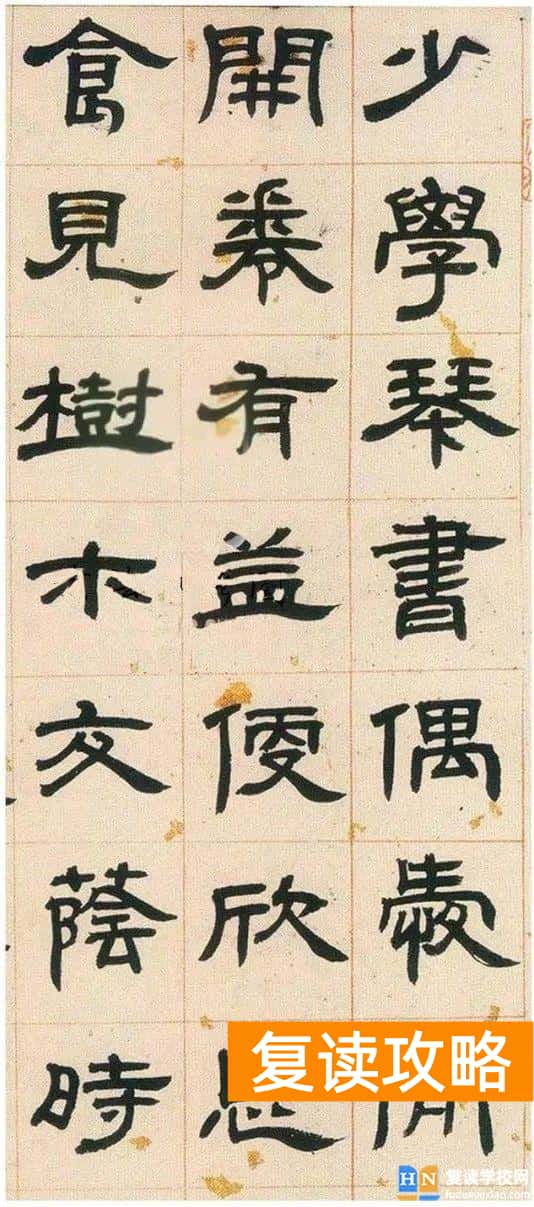 少學琴書偶愛
開卷有益便欣
食見樹木交蔭時
复读攻略
HN 复读学校网
fuduxuexiao.com